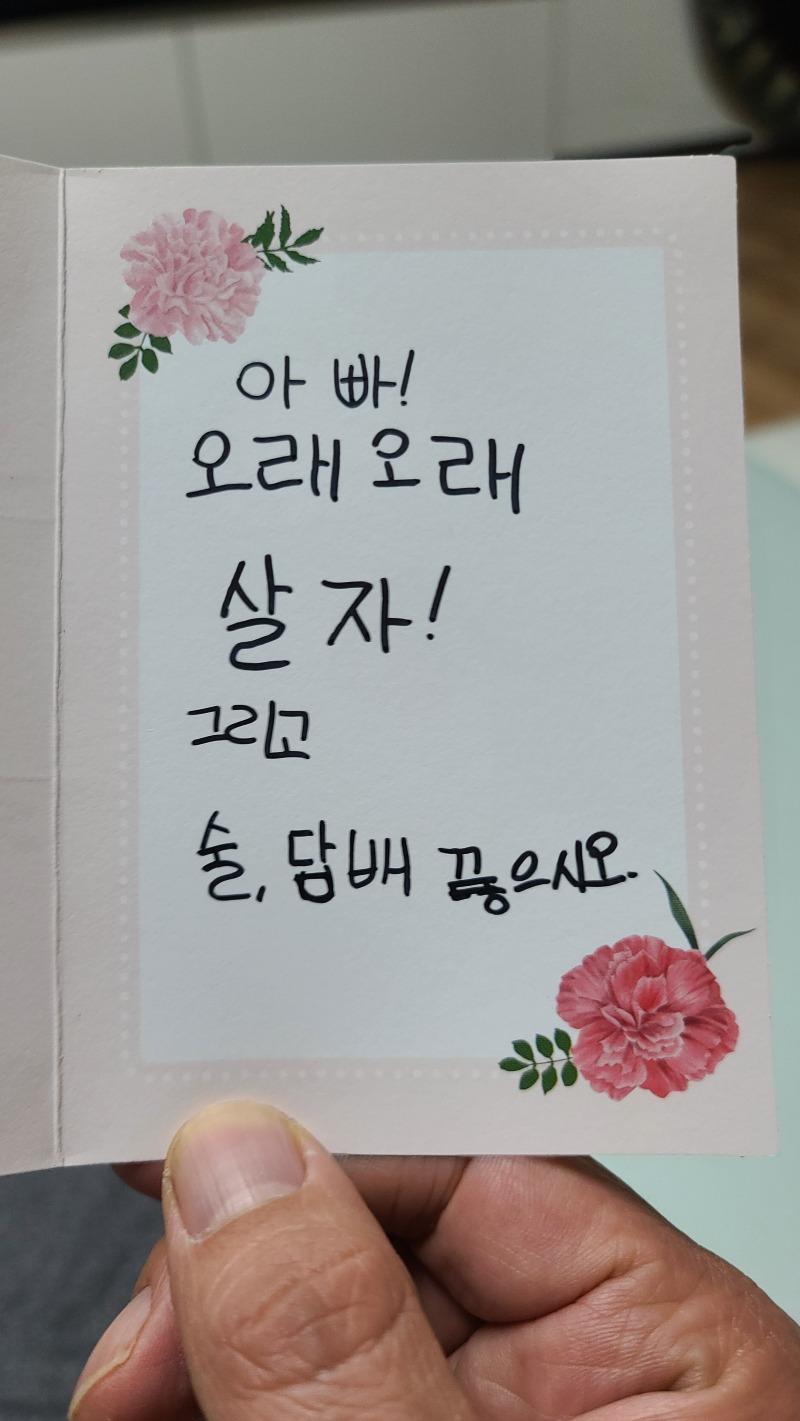 아빠!
오래오래
살자!
그리고
술, 담배 끊으시오.